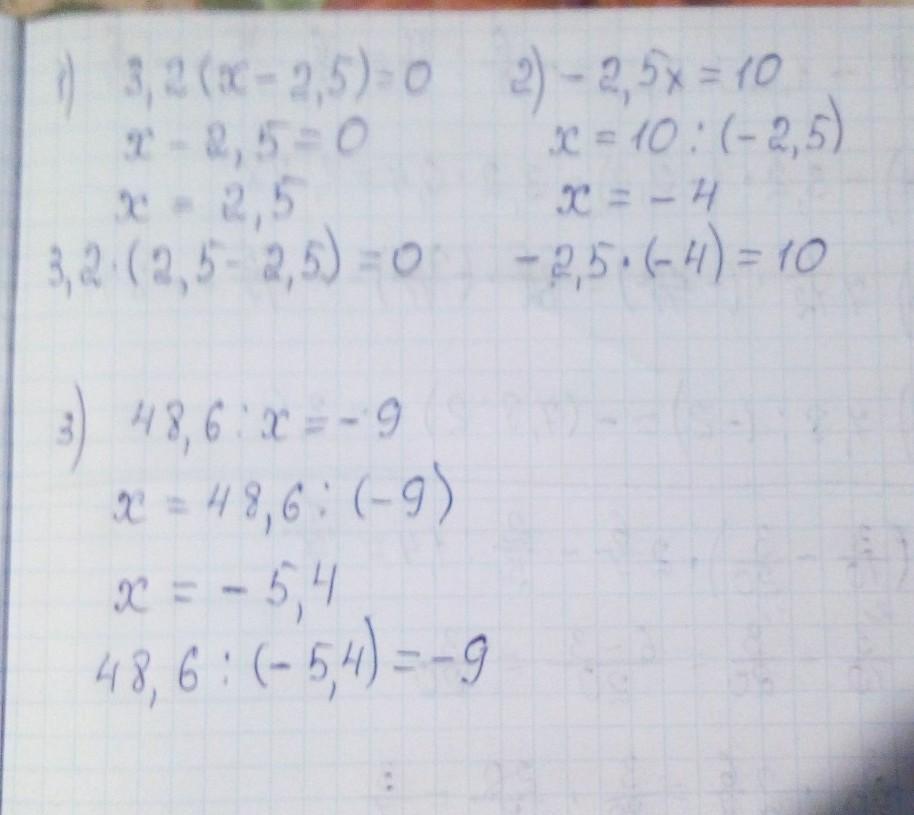 1) 3,2(x-2,5)=0
x-2,5=0
x=2,5
3,2·(2,5-2,5)=0
2) -2,5x=10
x=10:(-2,5)
x=-4
-2,5·(-4)=10
3) 48,6:x=-9
x=48,6:(-9)
x=-5,4
48,6:(-5,4)=-9